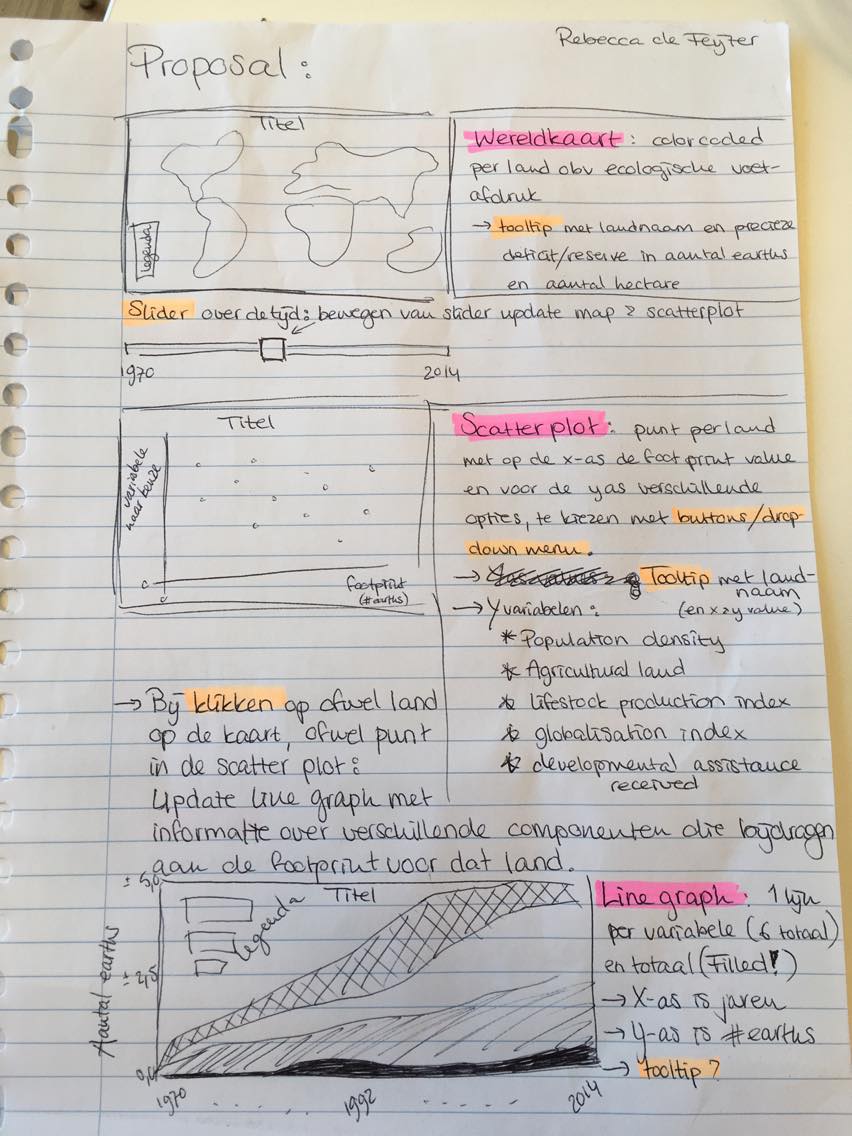 Rebecca de Feyter
Proposal:
Titel
legenda
Wereldkaart: colorcoded
per land obv ecologische voet-
afdruk
→ tooltip met landnaam en precieze
deficit/reserve in aantal earths
en aantal hectare
Slider over de tijd: bewegen van slider update map & scatterplot
1970
2014
Titel
variabele
naar keuze
footprint
(#earths)
Scatterplot: punt per land
met op de x-as de footprint value
en voor de y as verschillende
opties, te kiezen met buttons/drop-
down menu.
→ Tooltip met land-
naam
(en x & y value)
→ Y variabelen:
* Population density
* Agricultural land
* lifestock production index
* globalisation index
* developmental assistance
received
→ Bij klikken op ofwel land
op de kaart, ofwel punt
in de scatter plot:
Update line graph met
informatie over verschillende componenten die bijdragen
aan de footprint voor dat land.
Titel
legenda
Aantal earths
± 5,0
± 2,5
0,0
1970 . . . . . 1992 . . . . . 2014
Line graph: 1 lijn
per variabele (6 totaal)
en totaal (Filled!)
→ X-as is jaren
→ Y-as is #earths
→ tooltip?